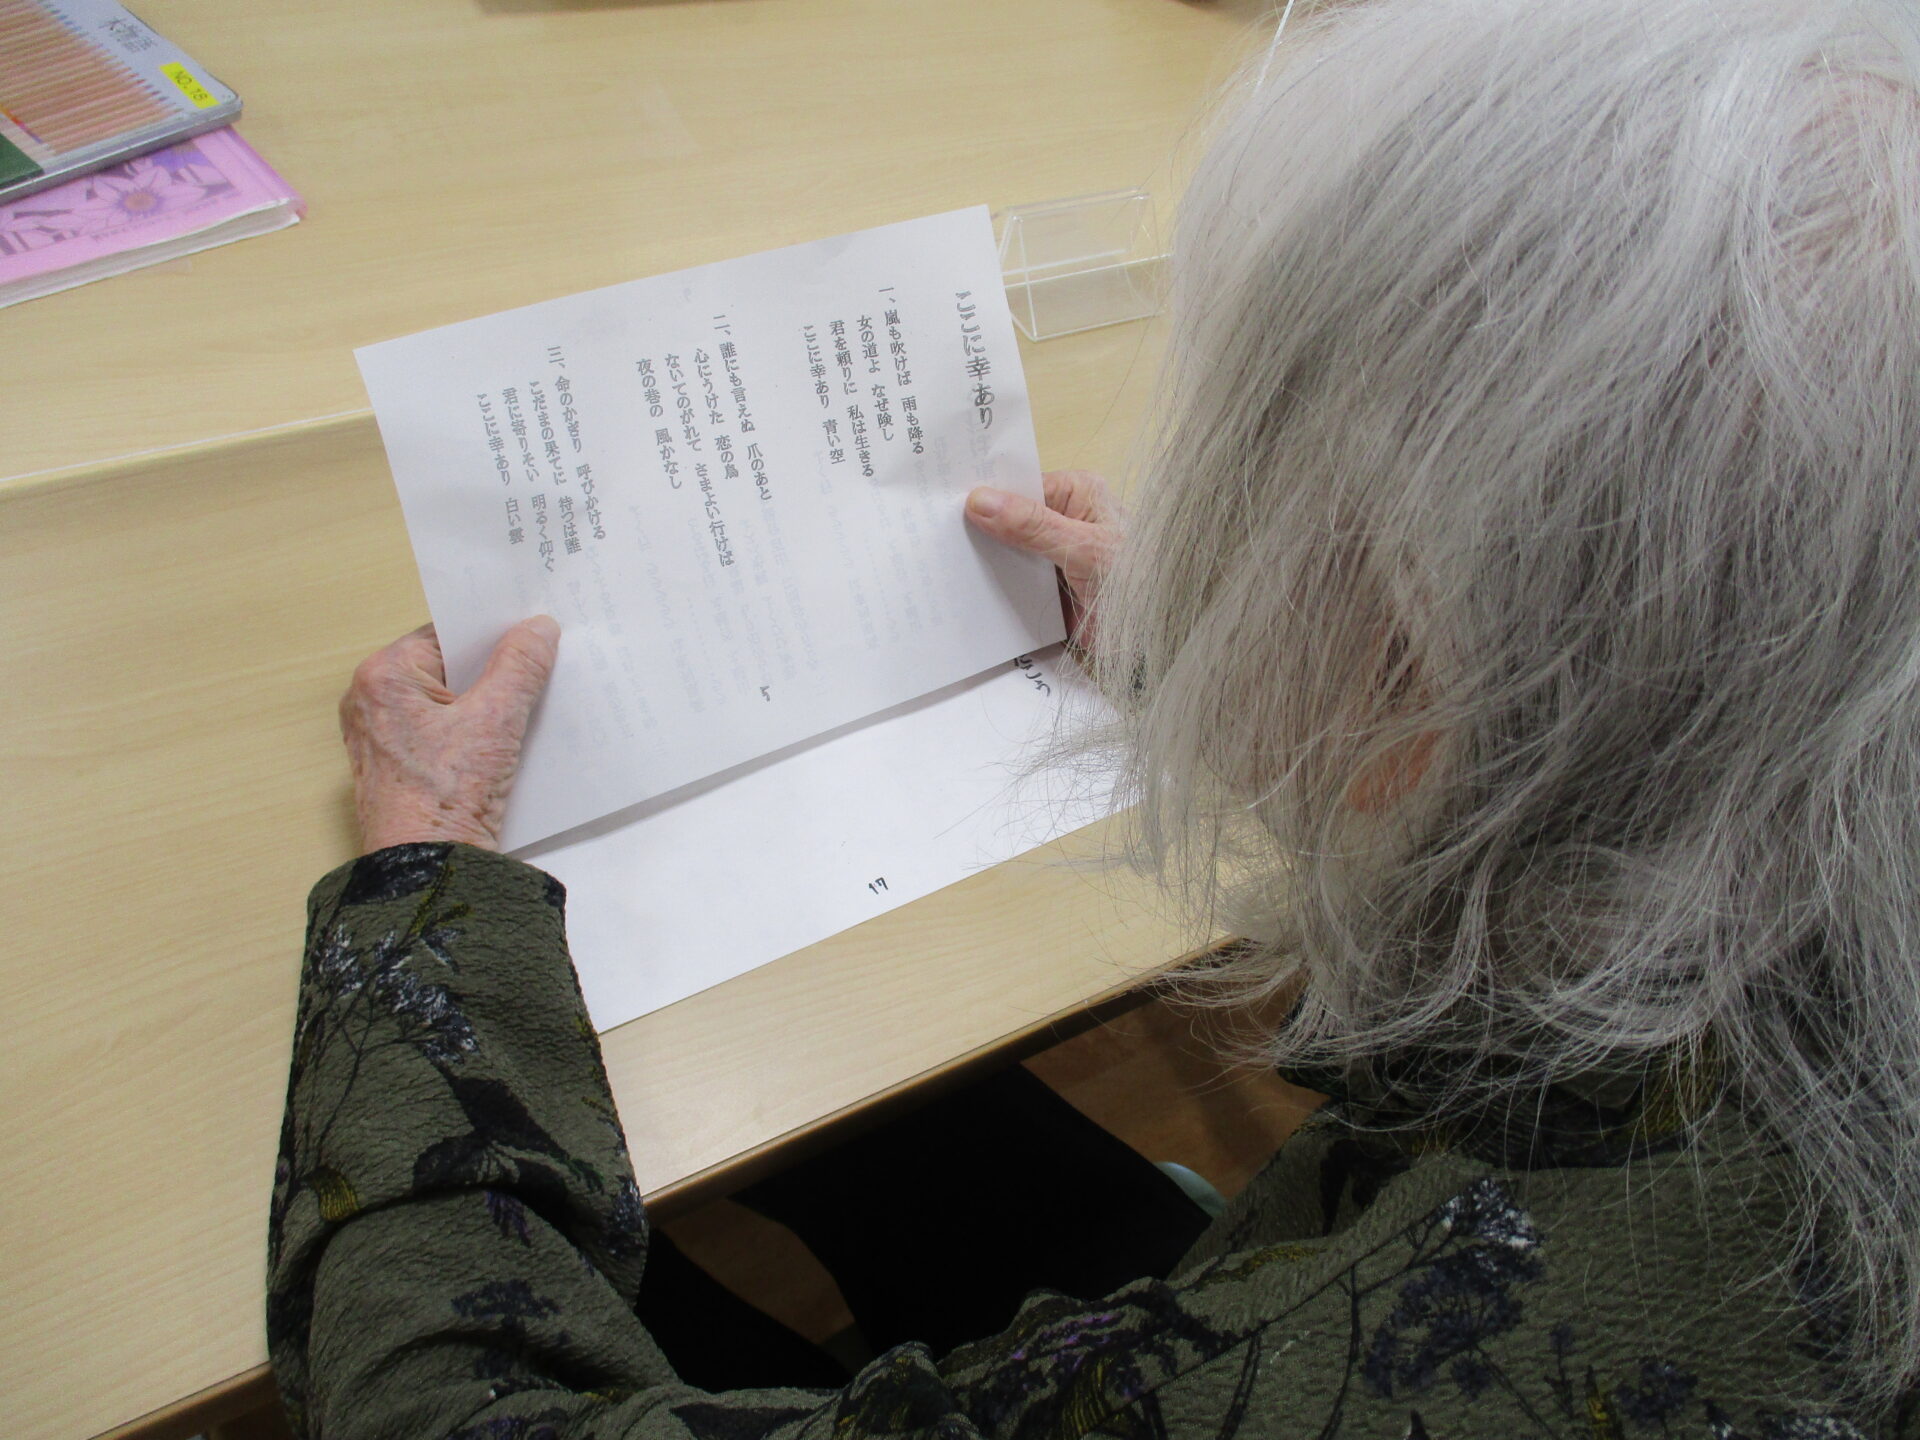 ここに幸あり
一、嵐も吹けば 雨も降る
女の道よ なぜ険し
君を頼りに 私は生きる
ここに幸あり 青い空
二、誰にも言えぬ 爪のあと
心にうけた 恋の鳥
ないてのがれて さまよい行けば
夜の巷の 風かなし
三、命のかぎり 呼びかける
こだまの果てに 待つは誰
君に寄りそい 明るく仰ぐ
ここに幸あり 白い雲
5
17
NO.19